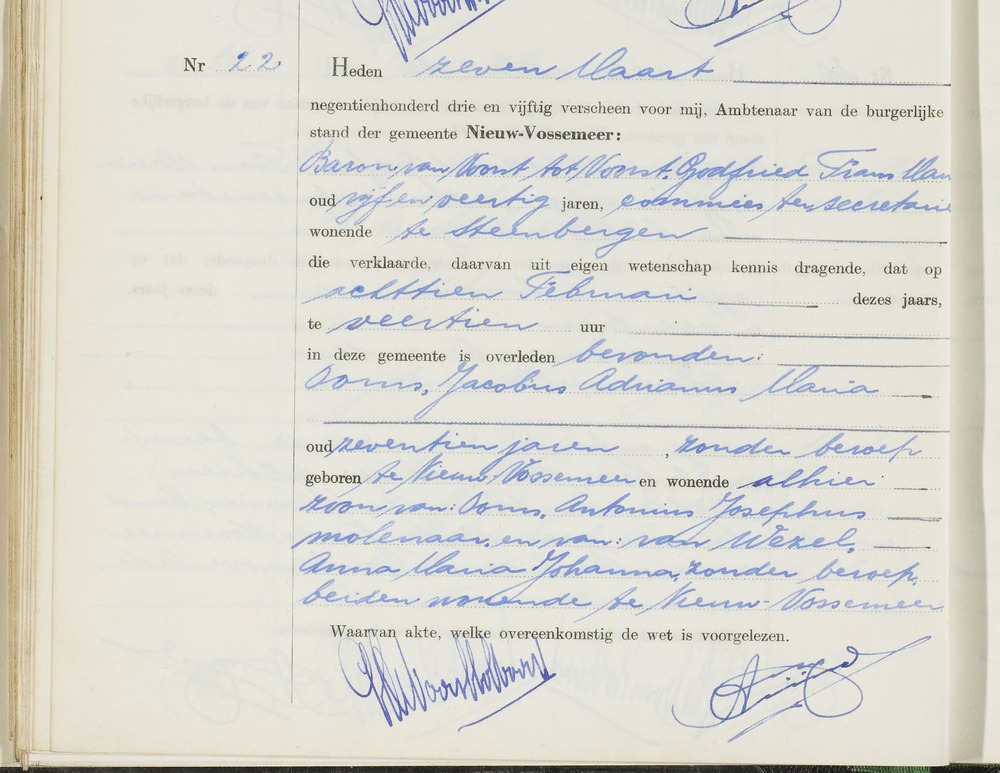 Nr 22 Heden zeven Maart
negentienhonderd drie en vijftig verscheen voor mij, Ambtenaar van de burgerlijke
stand der gemeente Nieuw-Vossemeer:
Baron van Voorst tot Voorst, Godfried Frans Mari
oud vijf en veertig jaren, commies ter secretarie
wonende te Steenbergen
die verklaarde, daarvan uit eigen wetenschap kennis dragende, dat op
achttien Februari dezes jaars,
te veertien uur
in deze gemeente is overleden bevonden:
Ooms, Jacobus Adrianus Maria
oud zeventien jaren, zonder beroep
geboren te Nieuw-Vossemeer en wonende alhier
zoon van: Ooms, Antonius Josephus
molenaar, en van: van Wezel,
Anna Maria Johanna, zonder beroep,
beiden wonende te Nieuw-Vossemeer
Waarvan akte, welke overeenkomstig de wet is voorgelezen.